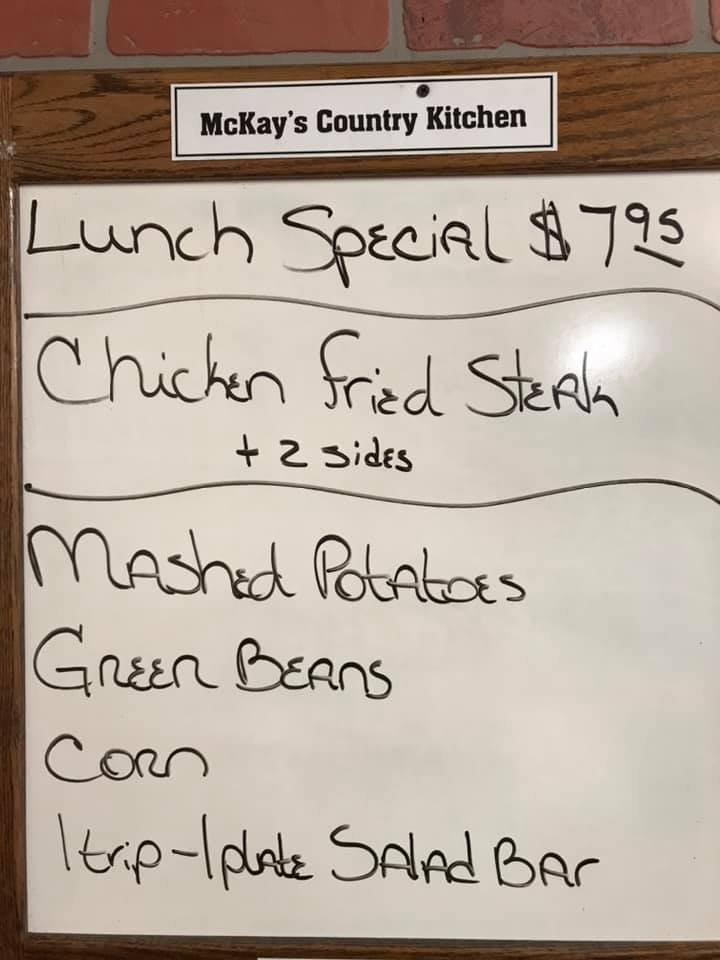 McKay's Country Kitchen
Lunch Special $7.95
Chicken fried Steak
+ 2 sides
Mashed Potatoes
Green Beans
Corn
1 trip-1 plate Salad Bar